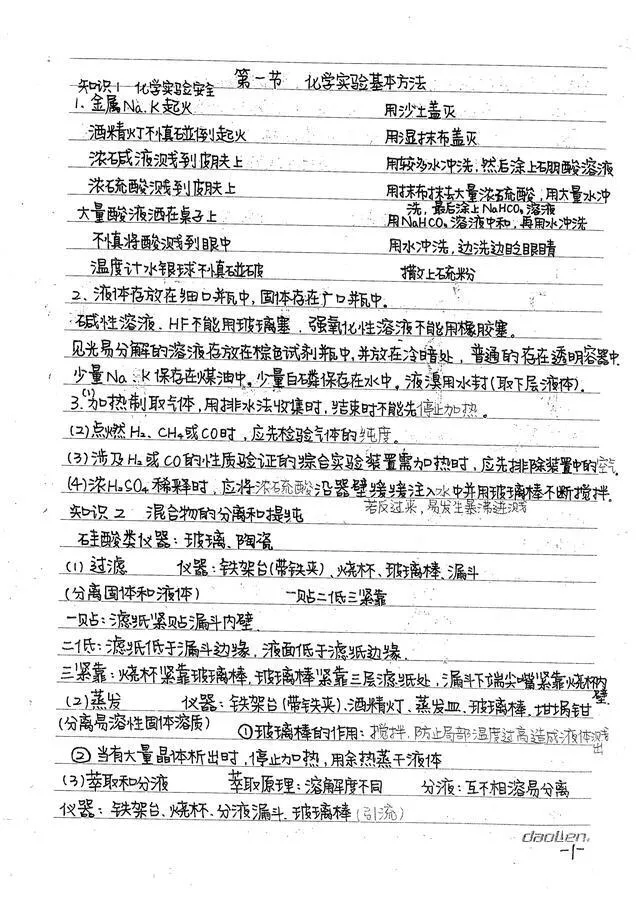 第一节 化学实验基本方法
知识1 化学实验安全
1. 金属Na、K起火 用沙土盖灭
酒精灯不慎碰倒起火 用湿抹布盖灭
浓碱液溅到皮肤上 用较多水冲洗,然后涂上硼酸溶液
浓硫酸溅到皮肤上 用抹布抹去大量浓硫酸,用大量水冲
洗,最后涂上NaHCO₃溶液
大量酸液洒在桌子上 用NaHCO₃溶液中和,再用水冲洗
不慎将酸溅到眼中 用水冲洗,边洗边眨眼睛
温度计水银球不慎碰破 撒上硫粉
2、液体存放在细口瓶中,固体存在广口瓶中。
碱性溶液、HF不能用玻璃塞,强氧化性溶液不能用橡胶塞。
见光易分解的溶液存放在棕色试剂瓶中,并放在冷暗处,普通的存在透明容器中.
少量Na、K保存在煤油中。少量白磷保存在水中。液溴用水封(取下层液体).
3.(1)加热制取气体,用排水法收集时,结束时不能先停止加热。
(2)点燃H₂、CH₄或CO时,应先检验气体的纯度。
(3)涉及H₂或CO的性质验证的综合实验装置需加热时,应先排除装置中的空气.
(4)浓H₂SO₄稀释时,应将浓硫酸沿器壁缓缓注入水中并用玻璃棒不断搅拌.
若反过来,易发生暴沸迸溅
知识2 混合物的分离和提纯
硅酸类仪器:玻璃、陶瓷
(1)过滤 仪器:铁架台(带铁夹)、烧杯、玻璃棒、漏斗
(分离固体和液体) 一贴二低三紧靠
一贴:滤纸紧贴漏斗内壁.
二低:滤纸低于漏斗边缘,液面低于滤纸边缘.
三紧靠:烧杯紧靠玻璃棒,玻璃棒紧靠三层滤纸处,漏斗下端尖嘴紧靠烧杯内壁.
(2)蒸发 仪器:铁架台(带铁夹)、酒精灯、蒸发皿、玻璃棒、坩埚钳
(分离易溶性固体溶质) ①玻璃棒的作用:搅拌,防止局部温度过高造成液体溅出
②当有大量晶体析出时,停止加热,用余热蒸干液体
(3)萃取和分液 萃取原理:溶解度不同 分液:互不相溶易分离
仪器:铁架台、烧杯、分液漏斗、玻璃棒(引流)
daolien
-1-